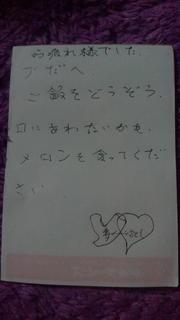 お疲れ様でした.
ブだへ
ご飯をどうぞう.
口にあわたいかも,
メロンを食ってくだ
さい